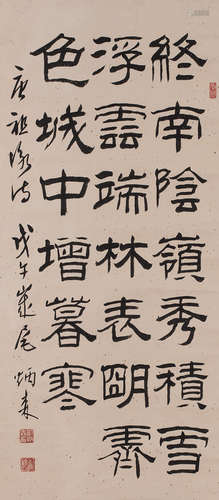 終南陰嶺秀積雪
浮雲端林表朙霽
色城中增暮寒
唐祖詠詩 戊午歲尾 炳森